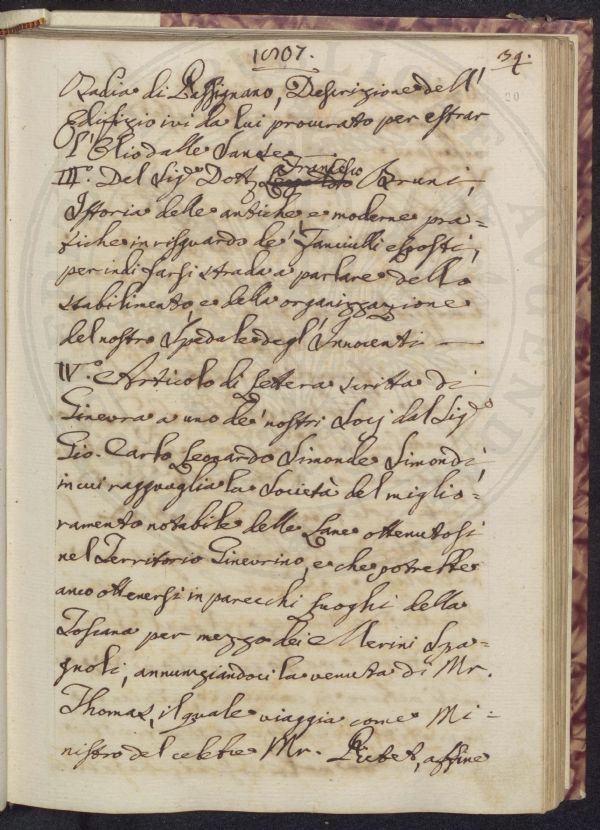 1807.
39.
20
Badia di Passignano, Descrizione dell'
Edifizio ivi da lui procurato per estrar
l'Olio dalle Sanse
III.° Del Sig.r Dott. Francesco Bruni,
Istoria delle antiche e moderne pra=
tiche in risguardo de' Fanciulli esposti,
per indi farsi strada a parlare dello
stabilimento, e della organizzazione
del nostro Spedale degl'Innocenti —
IV.° Articolo di Lettera scritta di
Ginevra a uno de' nostri Socj dal Sig.r
Gio. Carlo Leonardo Simonde Sismondi,
in cui ragguaglia la Società del miglio=
ramento notabile delle Lane ottenutosi
nel Territorio Ginevrino, e che potrebbe
anco ottenersi in parecchi Luoghi della
Toscana per mezzo dei Merini Spa=
gnoli, annunziandoci la venuta di Mr.
Thomas, il quale viaggia come Mi=
nistro del celebre Mr. Pictet, affine